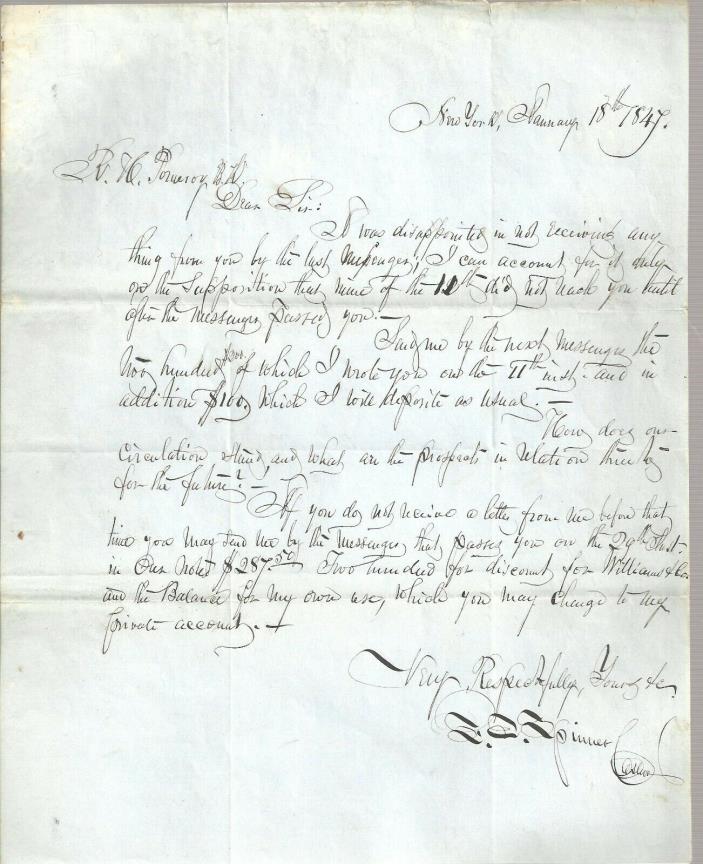 New York, January 18th 1847.
H. Pomeroy
Dear Sir:
I was disappointed in not receiving any
thing from you by the last Messenger; I can account for it only
on the Supposition that mine of the 11th did not reach you until
after the Messenger passed you.—
Send me by the next Messenger the
two hundred of which I wrote you on the 11th inst. and in
addition $100, which I will deposite as usual.—
How does our
Circulation stand, and what are the prospects in relation thereto
for the future?—
If you do not receive a letter from me before that
time you may send me by the Messenger that passes you on the 29th Inst.
in Our Notes $287.50 Two hundred for discount for Williams & Co
and the Balance for my own use, which you may charge to my
private account.—
Very Respectfully, Yours &c.
F. E. Spinner